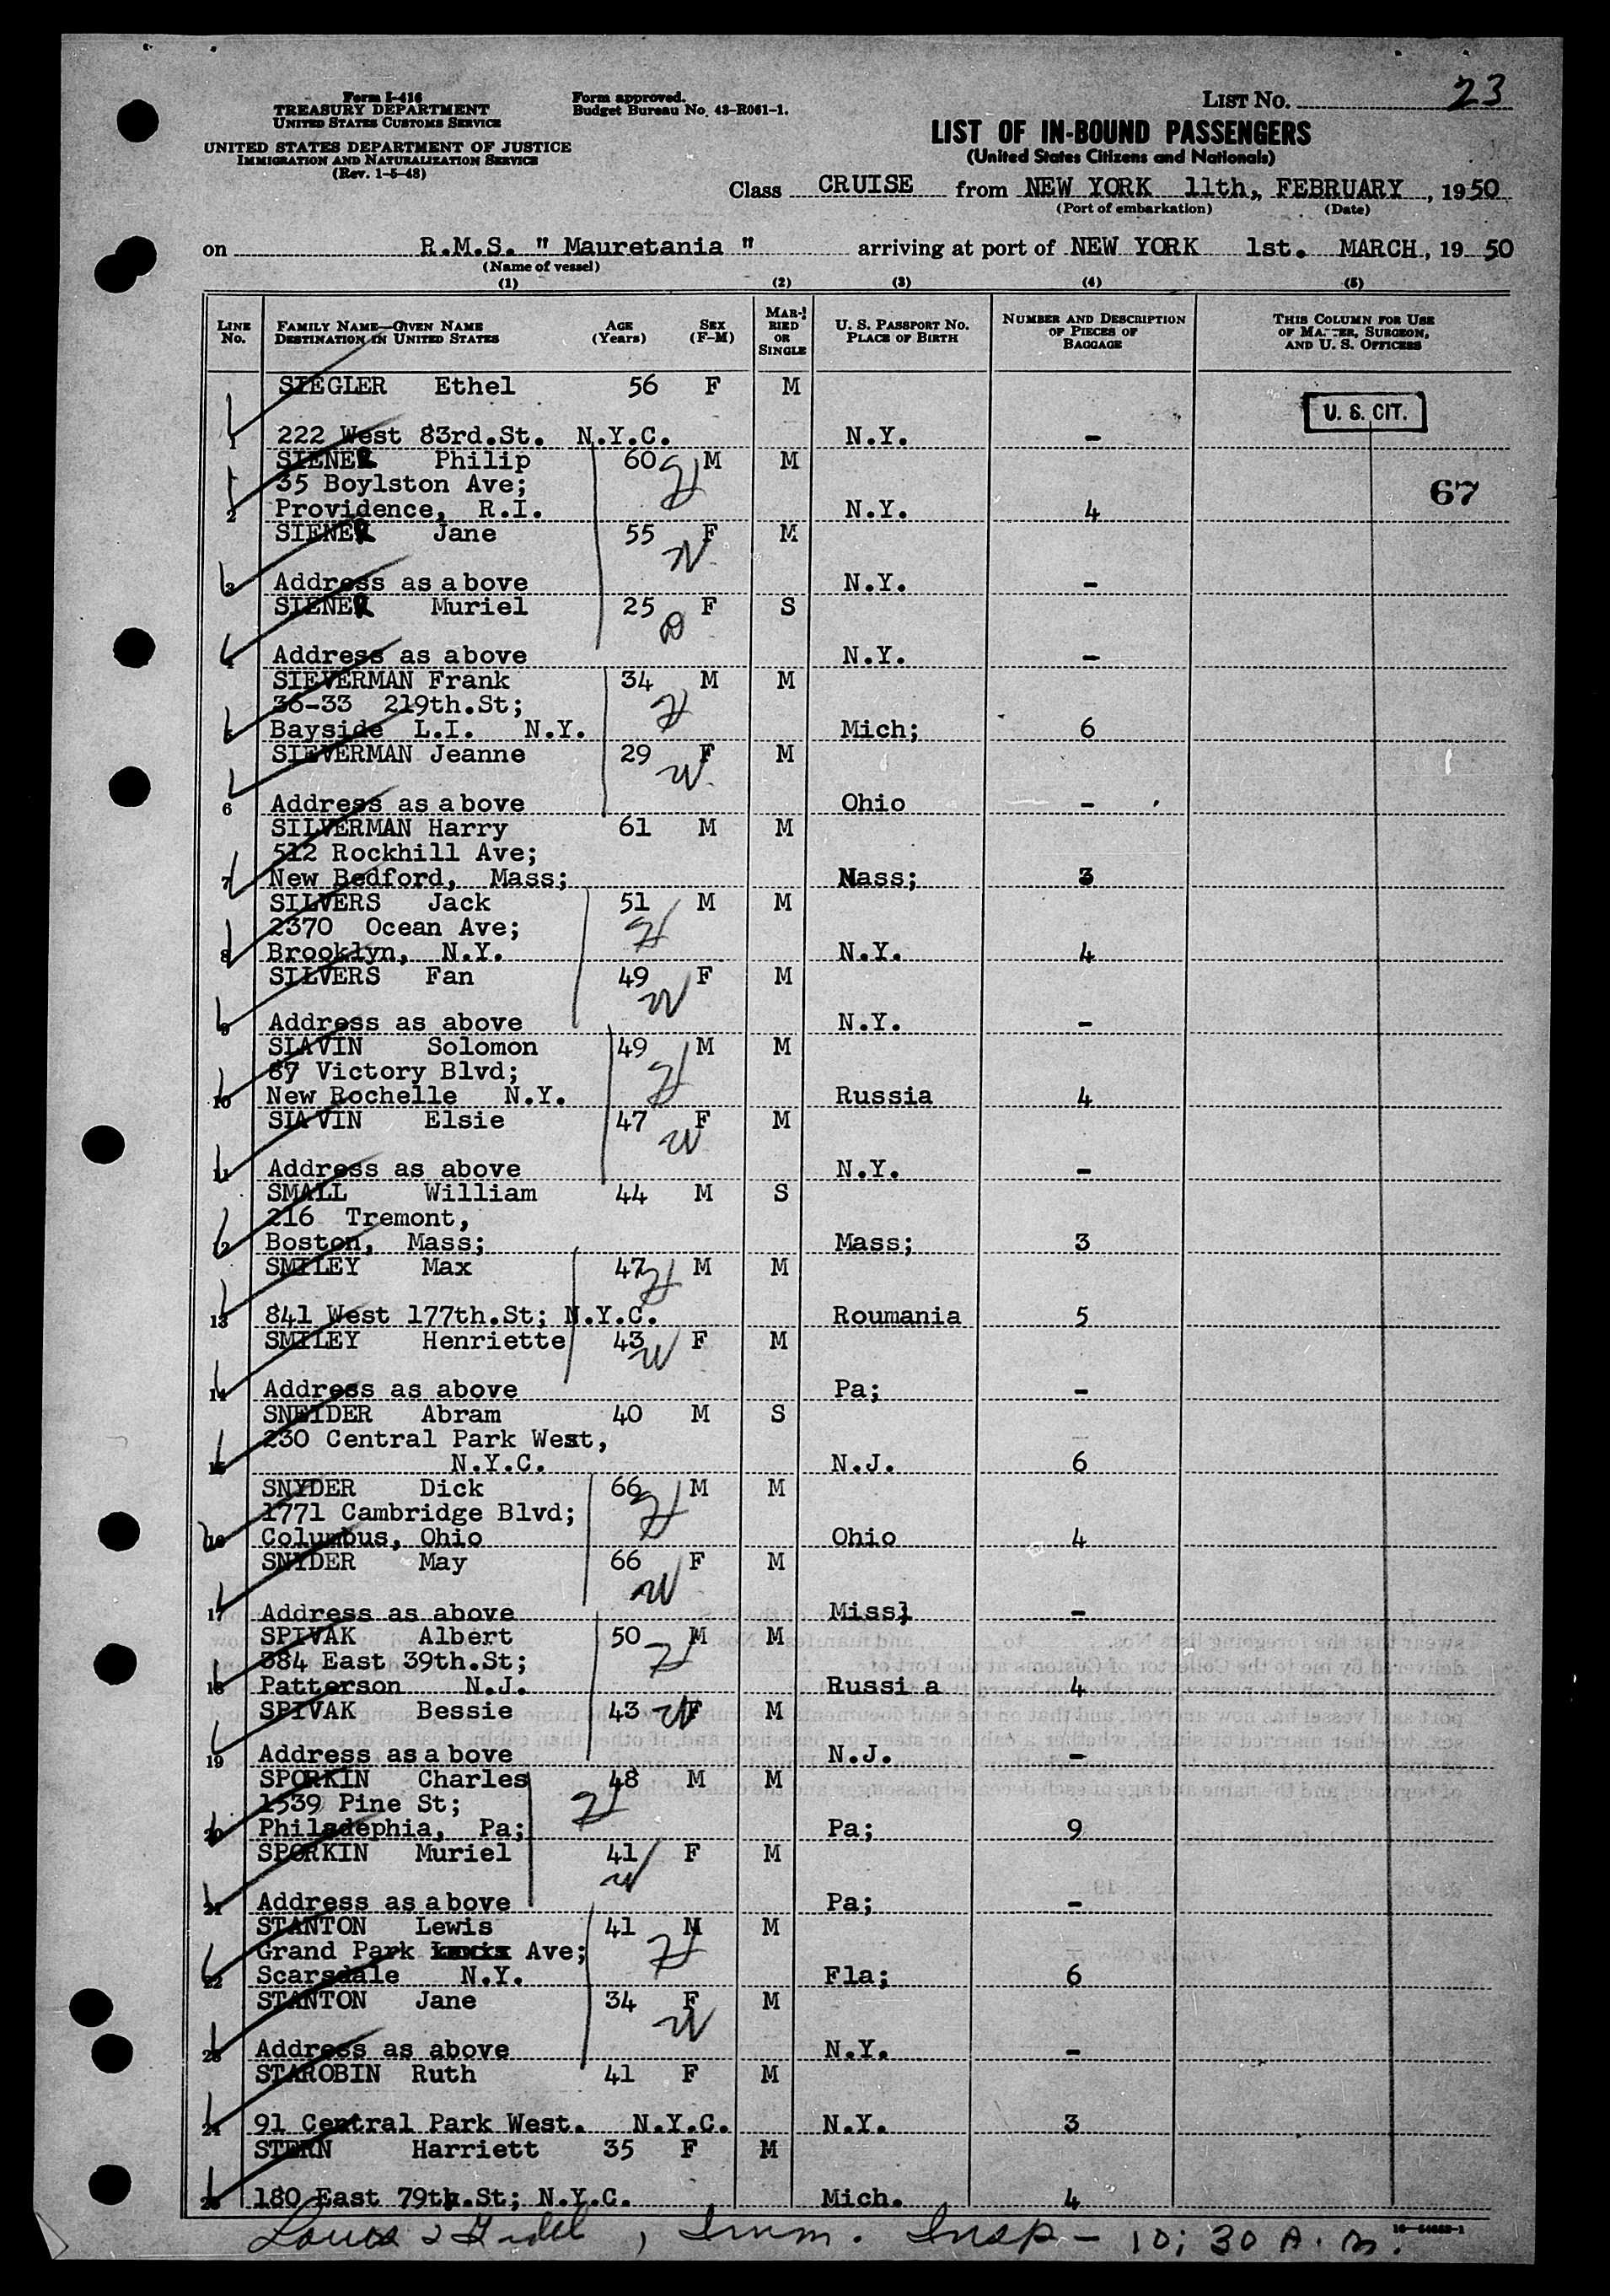 Form I-416
TREASURY DEPARTMENT
UNITED STATES CUSTOMS SERVICE
UNITED STATES DEPARTMENT OF JUSTICE
IMMIGRATION AND NATURALIZATION SERVICE
(Rev. 1-5-48)
Form approved.
Budget Bureau No. 43-R061-1.
LIST No. 23
LIST OF IN-BOUND PASSENGERS
(United States Citizens and Nationals)
Class CRUISE from NEW YORK 11th, FEBRUARY, 1950
(Port of embarkation) (Date)
on R.M.S. " Mauretania " arriving at port of NEW YORK 1st. MARCH, 1950
(Name of vessel)
(1) (2) (3) (4) (5)
LINE No. FAMILY NAME—GIVEN NAME DESTINATION IN UNITED STATES AGE (Years) SEX (F-M) MARRIED OR SINGLE U. S. PASSPORT NO. PLACE OF BIRTH NUMBER AND DESCRIPTION OF PIECES OF BAGGAGE THIS COLUMN FOR USE OF MASTER, SURGEON, AND U. S. OFFICERS
SIEGLER Ethel 56 F M
U. S. CIT.
1 222 West 83rd.St. N.Y.C. N.Y. -
SIENER Philip 60 H M M
35 Boylston Ave; 67
2 Providence, R.I. N.Y. 4
SIENER Jane 55 F M
W
3 Address as above N.Y. -
SIENER Muriel 25 F S
D
4 Address as above N.Y. -
SIEVERMAN Frank 34 M M
36-33 219th.St; H
5 Bayside L.I. N.Y. Mich; 6
SIEVERMAN Jeanne 29 F M
W
6 Address as above Ohio -
SILVERMAN Harry 61 M M
512 Rockhill Ave;
7 New Bedford, Mass; Mass; 3
SILVERS Jack 51 M M
2370 Ocean Ave; H
8 Brooklyn, N.Y. N.Y. 4
SILVERS Fan 49 F M
W
9 Address as above N.Y. -
SLAVIN Solomon 49 M M
87 Victory Blvd; H
10 New Rochelle N.Y. Russia 4
SLAVIN Elsie 47 F M
W
11 Address as above N.Y. -
SMALL William 44 M S
216 Tremont,
12 Boston, Mass; Mass; 3
SMILEY Max 47 H M M
13 841 West 177th.St; N.Y.C. Roumania 5
SMILEY Henriette 43 W F M
14 Address as above Pa; -
SNEIDER Abram 40 M S
230 Central Park West,
15 N.Y.C. N.J. 6
SNYDER Dick 66 M M
1771 Cambridge Blvd; H
16 Columbus, Ohio Ohio 4
SNYDER May 66 F M
W
17 Address as above Miss; -
SPIVAK Albert 50 M M
384 East 39th.St; H
18 Patterson N.J. Russi a 4
SPIVAK Bessie 43 W F M
19 Address as above N.J. -
SPORKIN Charles 48 M M
1539 Pine St; H
20 Philadephia, Pa; Pa; 9
SPORKIN Muriel 41 F M
W
21 Address as above Pa; -
STANTON Lewis 41 M M
Grand Park Ave; H
22 Scarsdale N.Y. Fla; 6
STANTON Jane 34 F M
W
23 Address as above N.Y. -
STAROBIN Ruth 41 F M
24 91 Central Park West. N.Y.C. N.Y. 3
STERN Harriett 35 F M
25 180 East 79th.St; N.Y.C. Mich. 4
Louis, Imm. Insp - 10:30 A.M.